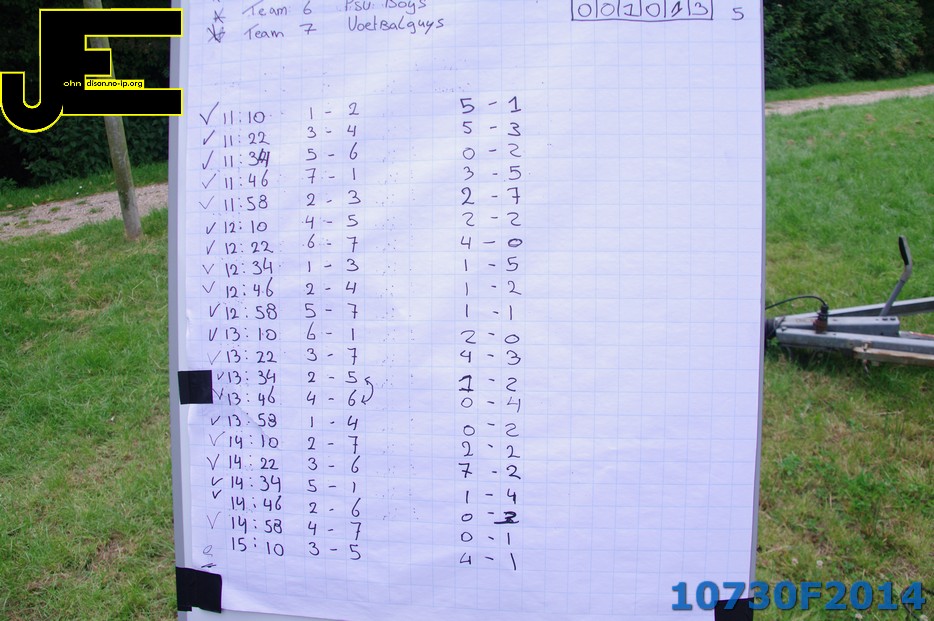 Team 6 PSU Boys 0 0 1 0 1 3 5
Team 7 Voetbalguys
John Edison.no-ip.org
11:10 1 - 2 5 - 1
11:22 3 - 4 5 - 3
11:34 5 - 6 0 - 2
11:46 7 - 1 3 - 5
11:58 2 - 3 2 - 7
12:10 4 - 5 2 - 2
12:22 6 - 7 4 - 0
12:34 1 - 3 1 - 5
12:46 2 - 4 1 - 2
12:58 5 - 7 1 - 1
13:10 6 - 1 2 - 0
13:22 3 - 7 4 - 3
13:34 2 - 5 1 - 2
13:46 4 - 6 0 - 4
13:58 1 - 4 0 - 2
14:10 2 - 7 2 - 2
14:22 3 - 6 7 - 2
14:34 5 - 1 1 - 4
14:46 2 - 6 0 - 3
14:58 4 - 7 0 - 1
15:10 3 - 5 4 - 1
10730F2014